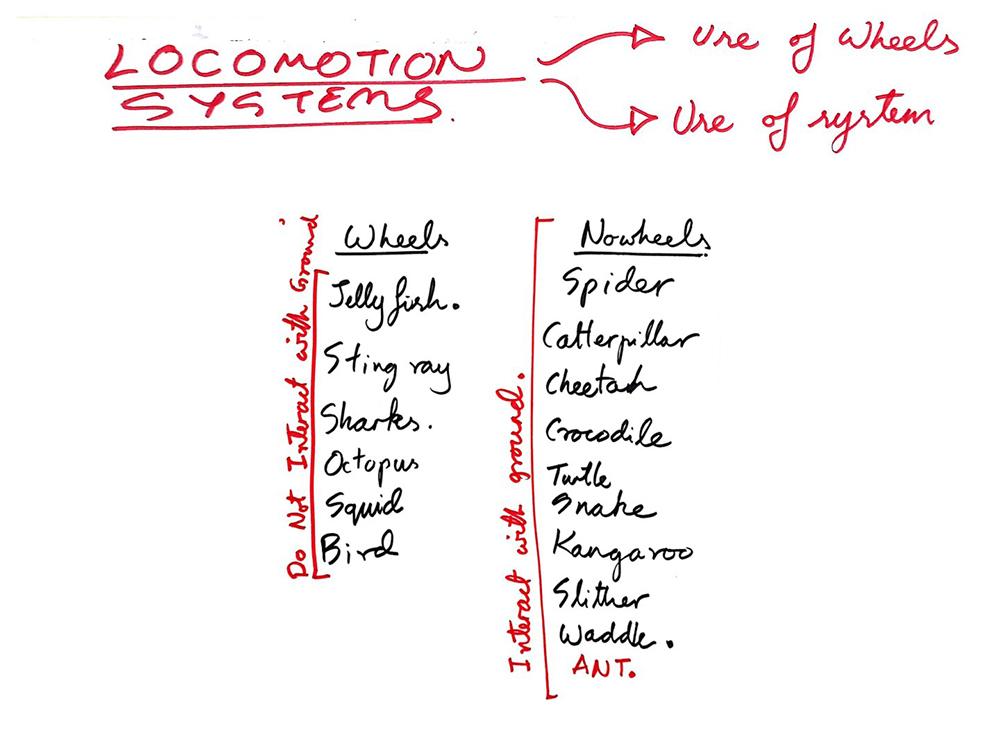 LOCOMOTION
SYSTEMS.
Use of Wheels
Use of system
Do Not Interact with Ground
Wheels
Jelly fish.
Sting ray
Sharks.
Octopus
Squid
Bird
Interact with ground.
Nowheels
Spider
Catterpillar
Cheetah
Crocodile
Turtle
Snake
Kangaroo
Slither
Waddle.
ANT.